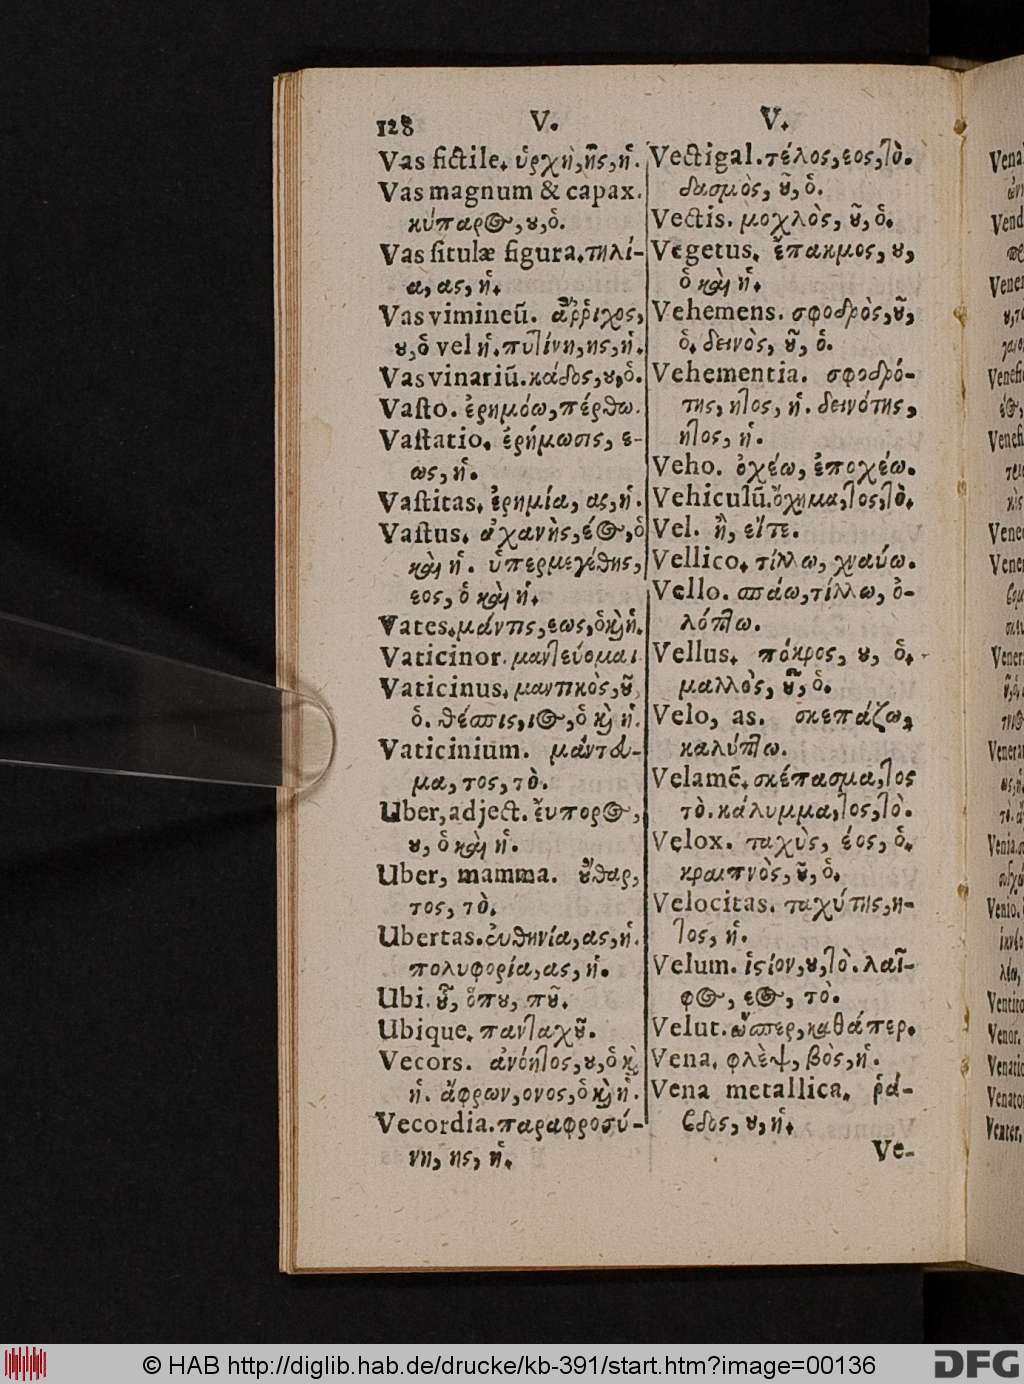 128 V. V.
Vas fictile. ὑρχὴ, ῆς, ἡ.
Vas magnum & capax.
κύπαρος, ου, ὁ.
Vas ſitulæ figura. τηλί-
α, ας, ἡ.
Vas vimineũ. ἄῤῥιχος,
ου, ὁ vel ἡ. πυτίνη, ης, ἡ.
Vas vinariũ. κάδος, ου, ὁ.
Vaſto. ἐρημόω, πέρθω.
Vaſtatio. ἐρήμωσις, ε-
ως, ἡ.
Vaſtitas. ἐρημία, ας, ἡ.
Vaſtus. ἀχανὴς, έος, ὁ
καὶ ἡ. ὑπερμεγέθης,
εος, ὁ καὶ ἡ.
Vates. μάντις, εως, ὁ κὶ ἡ.
Vaticinor. μαντεύομαι
Vaticinus. μαντικὸς, οῦ,
ὁ. θέσπις, ιος, ὁ κὶ ἡ.
Vaticinium. μάντευ-
μα, τος, τὸ.
Uber, adject. ἔυπορος,
ου, ὁ καὶ ἡ.
Uber, mamma. οὖθαρ,
τος, τὸ.
Ubertas. ἐυθηνία, ας, ἡ.
πολυφορία, ας, ἡ.
Ubi. οὗ, ὅπου, ποῦ.
Ubique. πανταχοῦ.
Vecors. ἀνόητος, ου, ὁ κὶ
ἡ. ἄφρων, ονος, ὁ κὶ ἡ.
Vecordia. παραφροσύ-
νη, ης, ἡ.
Vectigal. τέλος, εος, τὸ.
δασμὸς, οῦ, ὁ.
Vectis. μοχλὸς, οῦ, ὁ.
Vegetus. ἔπακμος, ου,
ὁ καὶ ἡ.
Vehemens. σφοδρὸς, οῦ,
ὁ. δεινὸς, οῦ, ὁ.
Vehementia. σφοδρό-
της, ητος, ἡ. δεινότης,
ητος, ἡ.
Veho. ὀχέω, ἐποχέω.
Vehiculũ. ὄχημα, τος, τὸ.
Vel. ἢ, εἴτε.
Vellico. τίλλω, χναύω.
Vello. σπάω, τίλλω, ὀ-
λόπτω.
Vellus. πόκρος, ου, ὁ.
μαλλὸς, οῦ, ὁ.
Velo, as. σκεπάζω,
καλύπτω.
Velamẽ. σκέπασμα, τος
τὸ. κάλυμμα, τος, τὸ.
Velox. ταχὺς, έος, ὁ.
κραιπνὸς, οῦ, ὁ.
Velocitas. ταχύτης, η-
τος, ἡ.
Velum. ἱστίον, ου, τὸ. λαῖ-
φος, εος, τὸ.
Velut. ὥσπερ, καθάπερ.
Vena. φλὲψ, βὸς, ἡ.
Vena metallica. ῥά-
βδος, ου, ἡ.
Ve-
© HAB http://diglib.hab.de/drucke/kb-391/start.htm?image=00136
DFG